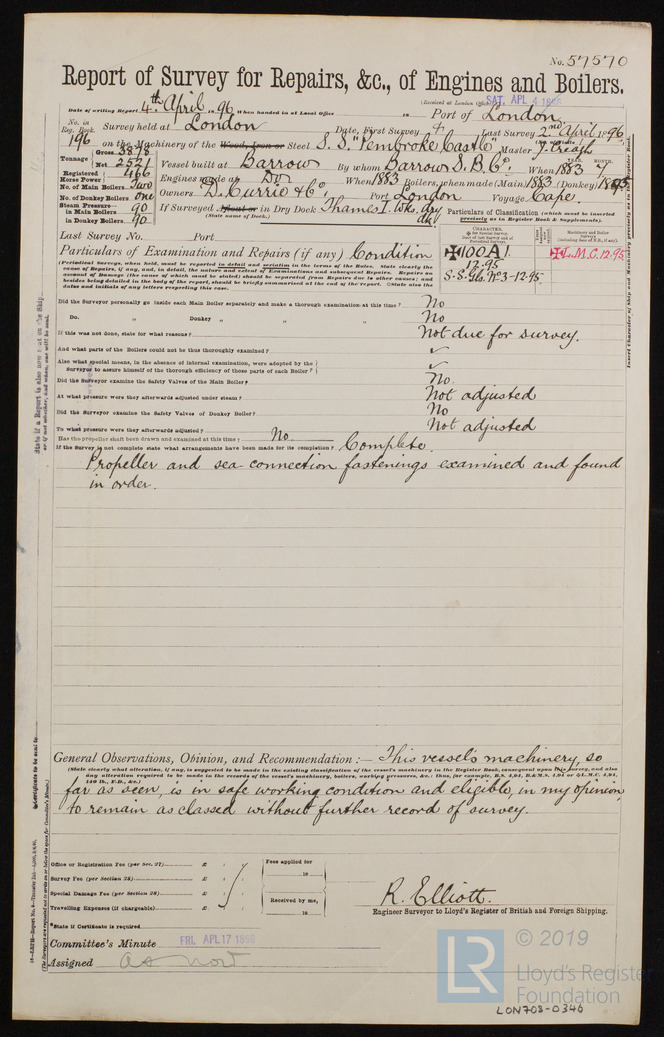 No. 57570
Report of Survey for Repairs, &c., of Engines and Boilers.
(Received at London Office SAT. APL 4 1896
Date of writing Report 4th April 1896 When handed in at Local Office 18 Port of London
No. in Reg. Book. Survey held at London Date, First Survey 4 Last Survey 2nd April 1896
196 on the Machinery of the Wood, Iron or Steel S.S. "Pembroke Castle" Master J. Creagh
Tonnage Gross 3878
Net 2521 Vessel built at Barrow By whom Barrow S.B. Co. When 1883 7
Registered Horse Power 466 Engines made at Do When 1883 Boilers, when made (Main) 1883 (Donkey) 1895
No. of Main Boilers Two Owners D. Currie & Co Port London Voyage Cape.
No. of Donkey Boilers One
Steam Pressure—
in Main Boilers 90 If Surveyed Afloat or in Dry Dock Thames I. Wks. dry dk
in Donkey Boilers 90 (State name of Dock.)
Particulars of Classification (which must be inserted precisely as in Register Book & Supplements).
Last Survey No. Port
Particulars of Examination and Repairs (if any) Condition
(Periodical Surveys, when held, must be reported in detail and seriatim in the terms of the Rules. State clearly the
cause of Repairs, if any, and, in detail, the nature and extent of Examinations and subsequent Repairs. Repairs on
account of Damage (the cause of which must be stated) should be separated from Repairs due to other causes; and
besides being detailed in the body of the report, should be briefly summarised at the end of the report. State also the
dates and initials of any letters respecting this case.
CHARACTER.
Machinery and Boiler Surveys
✠100A1
12-95
S.S. No. 3-12-95
✠L.M.C. 12.95
Did the Surveyor personally go inside each Main Boiler separately and make a thorough examination at this time? No
Do. " Donkey " " " No
If this was not done, state for what reasons? Not due for survey.
And what parts of the Boilers could not be thus thoroughly examined? ✓
Also what special means, in the absence of internal examination, were adopted by the
Surveyor to assure himself of the thorough efficiency of those parts of each Boiler? ✓
Did the Surveyor examine the Safety Valves of the Main Boiler? No.
At what pressure were they afterwards adjusted under steam? Not adjusted
Did the Surveyor examine the Safety Valves of Donkey Boiler? No
To what pressure were they afterwards adjusted? Not adjusted
Has the propeller shaft been drawn and examined at this time? No
If the Survey is not complete state what arrangements have been made for its completion? Complete.
Propeller and sea connection fastenings examined and found
in order.
General Observations, Opinion, and Recommendation:— This vessel's machinery, so
(State clearly what alteration, if any, is suggested to be made in the existing classification of the vessel's machinery in the Register Book, consequent upon this survey, and also
any alteration required to be made in the records of the vessel's machinery, boilers, working pressures, &c.: thus, for example, B.S. 4,94, B.&M.S. 4,94 or ✠L.M.C. 4,94,
140 lb., F.D., &c.)
far as seen, is in safe working condition and eligible, in my opinion,
to remain as classed without further record of survey.
Office or Registration Fee (per Sec. 27) £
Survey Fee (per Section 28) £
Special Damage Fee (per Section 28) £
Travelling Expenses (if chargeable) £
Fees applied for
18
Received by me,
18
R. Elliott.
Engineer Surveyor to Lloyd's Register of British and Foreign Shipping.
*State if Certificate is required
Committee's Minute FRI. APL 17 1896
Assigned as now
LR
© 2019
Lloyd's Register
Foundation
LON708-0346